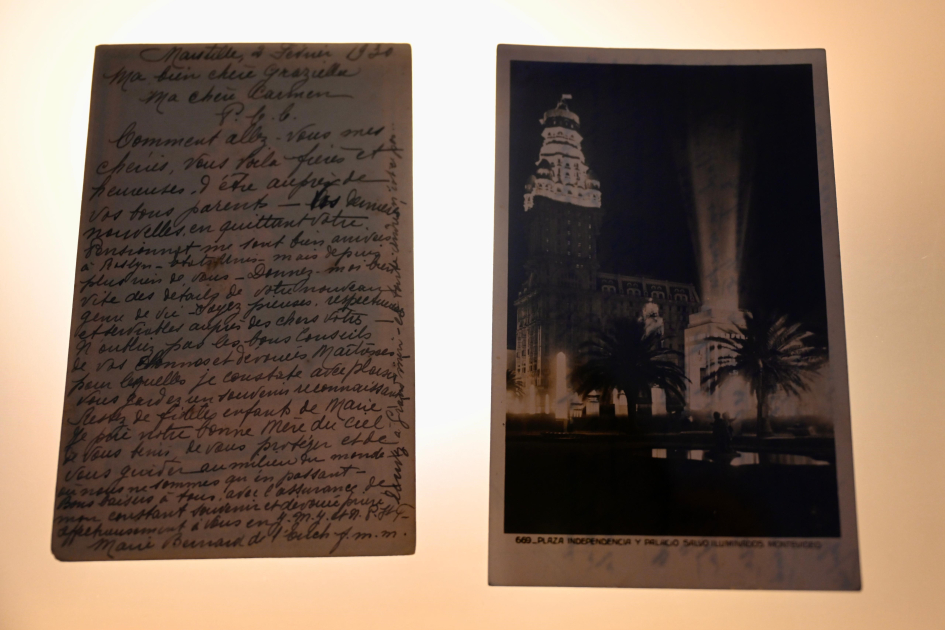 Marseille, 2 Février 1930
Ma bien chère Graziella
Ma chère Carmen
Comment allez-vous mes
chéries, vous voilà fières et
heureuses d'être auprès de
vos bons parents — Vos dernières
nouvelles, en quittant votre
Pensionnat me sont bien arrivées
à mais depuis
plus rien de vous — Donnez-moi bien
vite des détails de votre nouveau
genre de vie — Soyez pieuses, respectueuses
et serviables auprès des chers vôtres —
N'oubliez pas les bons conseils
de vos bonnes et dévouées Maîtresses
pour lesquelles je constate avec plaisir
vous gardez un souvenir reconnaissant
Restez de fidèles enfants de Marie
Je prie notre bonne Mère du Ciel
de vous bénir, de vous protéger et de
vous guider au milieu du monde
où nous ne sommes qu'en passant —
Bons baisers à tous, avec l'assurance de
mon constant souvenir et dévouée prière
affectueusement à vous en J. M. J. et N. P. St F.
Marie Bernard de l'E f. m. m.
669_PLAZA INDEPENDENCIA Y PALACIO SALVO ILUMINADOS. MONTEVIDEO